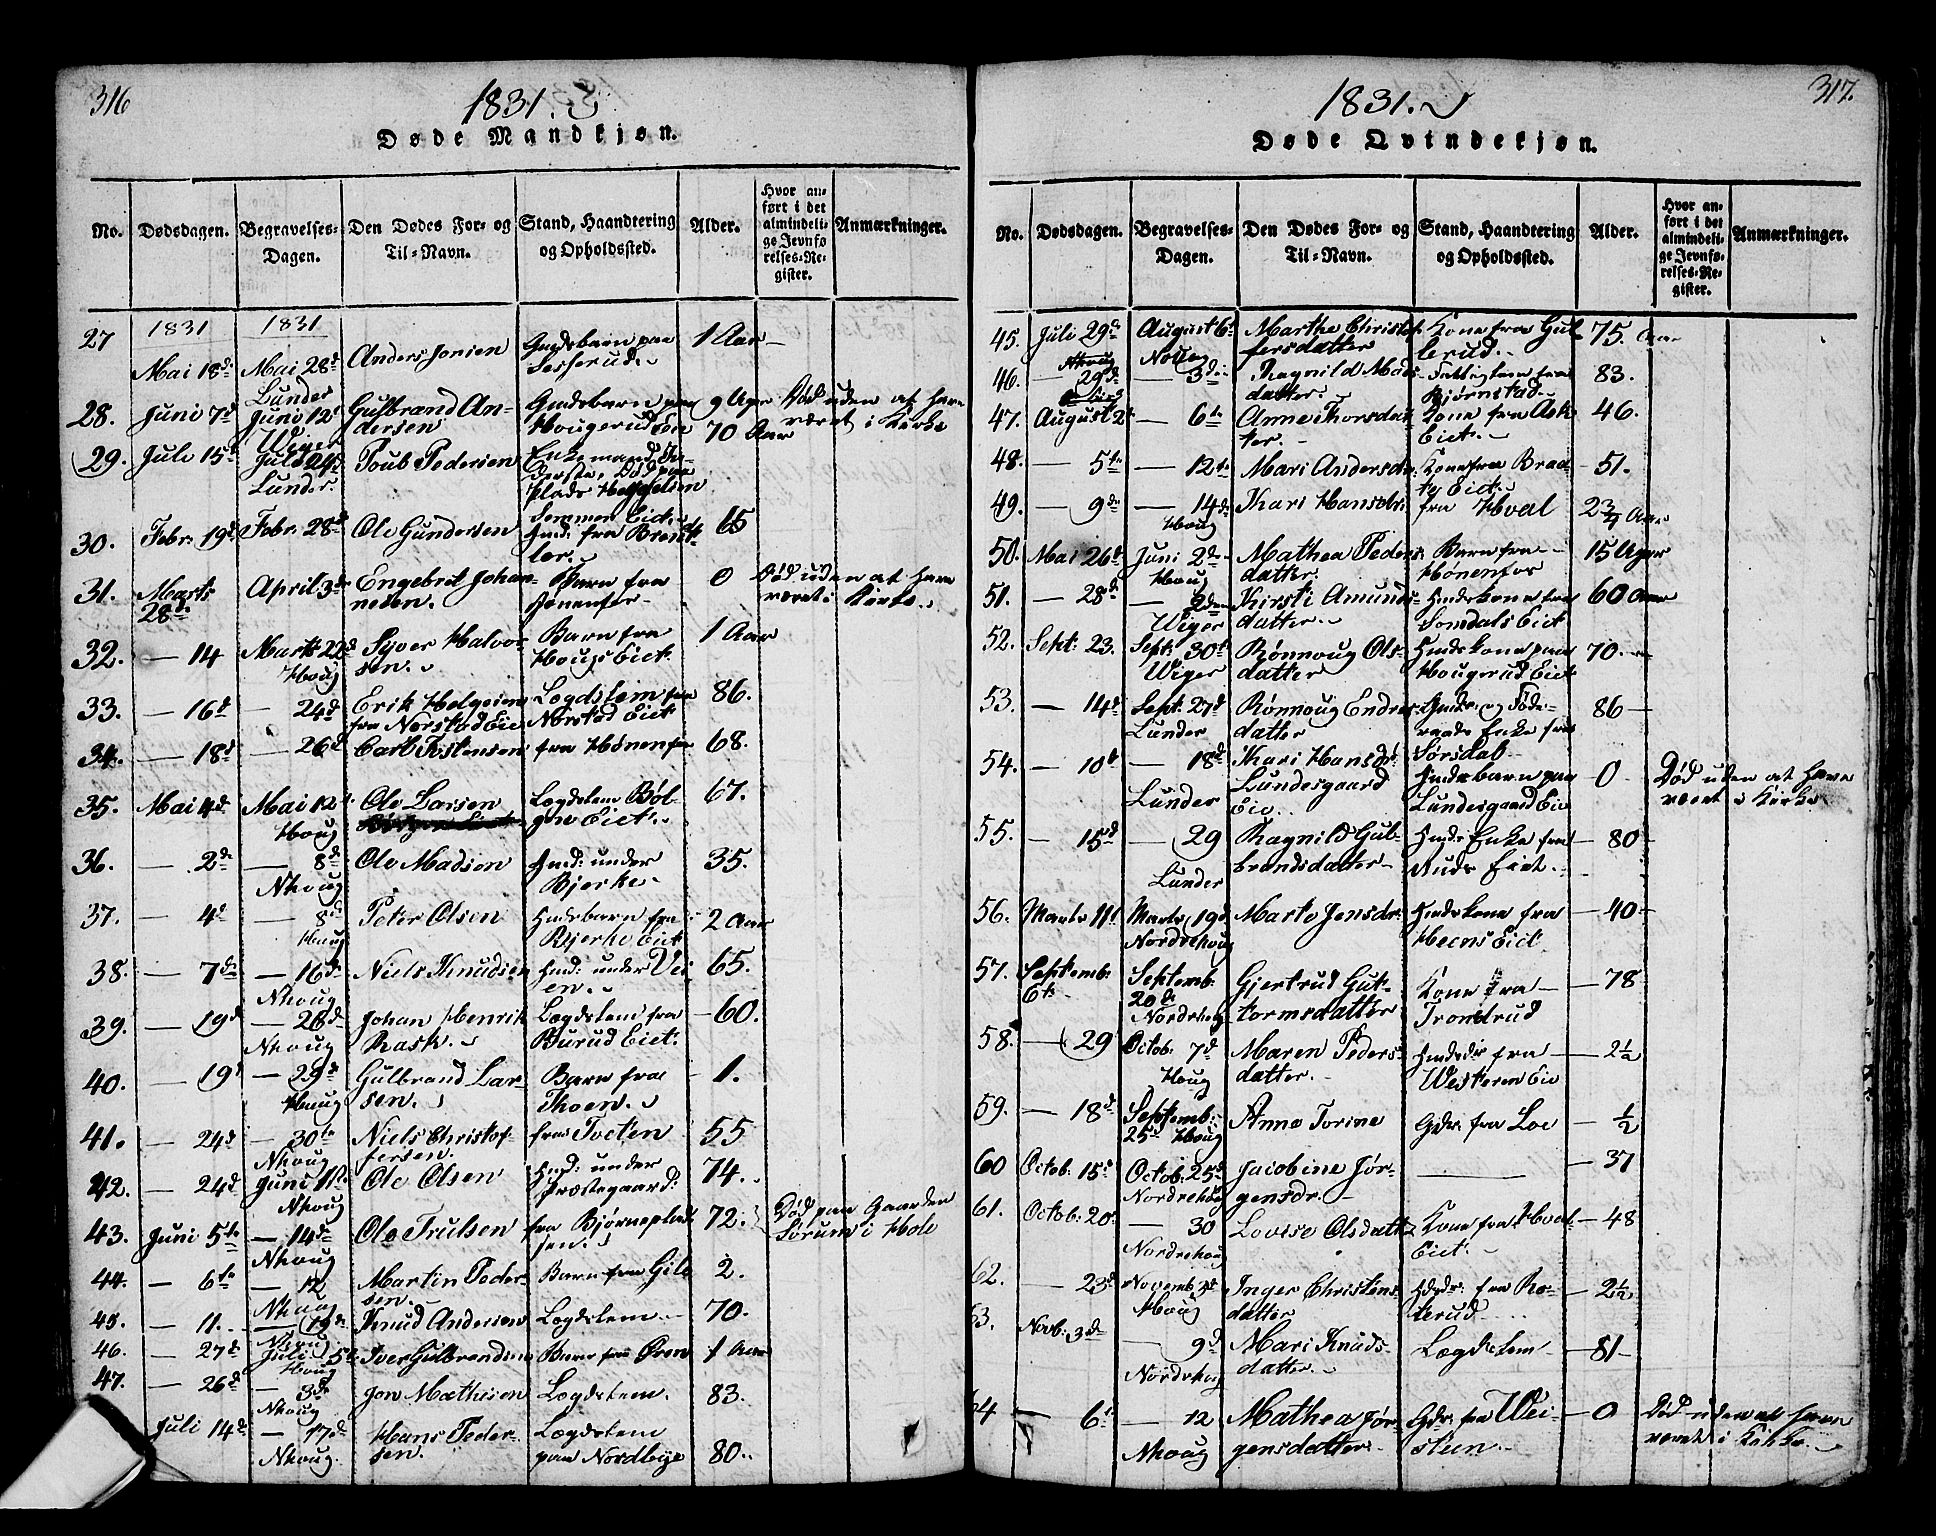 316
1831.
Døde Mandkjøn.
No. Dødsdagen. Begravelses-Dagen. Den Dødes For- og Til-Navn. Stand, Haandtering og Opholdssted. Alder. Hvor anført i det almindelige Jevnførelses-Register. Anmærkninger.
27 1831 1831
Mai 18d Mai 28d Anders Jonsen Gmdsbarn paa 1 Aar
Lunder
28. Juni 7d Juni 12t Gulbrand Andersen Gmdsbarn paa Hougerud Eie 9 Uger Død uden at have været i Kirke
29. Juli 15d Juli 24d Lunder. Toub Pedersen Enkemand 70 Aar
30. Febr: 19d Febr. 28d Ole Gundersen Ind: fra 65
31. Marts 28de April 3de Engebret Johannesen. Barn fra Hønenfos 0 Død uden at have været i Kirke
32. — 14 Marts 22d Houg Syver Halvorsen. Barn fra Hougs Eiet. 1 Aar
33. — 16d — 24d Erik Helgesen fra Norstad Eie Legdslem fra Norstad Eiet 86.
34. — 18d — 26d Carl Tostensen fra Hønenfos 68.
35. Mai 4de Mai 12t Houg Ole Larsen Legdslem Eiet. 67.
36. — 2de — 8de Nhoug Ole Madsen Ind: under Bjerke. 35.
37. — 4d — 8de Houg Peter Olsen Indsbarn fra Bjerke Eiet 2 Aar
38. — 7de — 16de Nhoug Niels Knudsen Ind: under Veien. 65.
39. — 19d — 28de Nhoug Johan Henrik Rask. Lægdslem fra Burud Eiet. 60.
40. — 19d — 29de Houg Gulbrand Larsen. Barn fra 1.
41. — 24d — 30te Nhoug Niels Christoffersen. fra Toeten 55
42. — 24d Juni 11t Nhoug Ole Olsen Ind: under Præstegaard: 74.
43. Juni 5te — 14de Nhoug Ole Trulsen fra Bjørnepladsen. 72. Død paa Gaarden Sørum i Hole
44. — 6te — 12 Nhoug Martin Pedersen. Barn fra 2.
45. — 11. Knud Andersen Lægdslem 70.
46. — 27de Juli 5te Houg Iver Gulbrandsen Barn fra Øren 1 Aar
47. — 26d — 3de Nhoug Jon Mathisen Lægdslem. 83.
Juli 14de — 17de Nhoug. Hans Pedersen. Lægdslem paa Nordbye 80.
317.
1831.
Døde Qvindekjøn.
No. Dødsdagen. Begravelses-Dagen. Den Dødes For- og Til-Navn. Stand, Haandtering og Opholdssted. Alder. Hvor anført i det almindelige Jevnførelses-Register. Anmærkninger.
45. Juli 29de August 6te Marthe Christofersdatter Kone fra 75. Aar
46. — 29de — 3de Ragnild Madsdatter. fra Bjørnstad. 83.
47. August 2d — 6te Anne Thorsdatter. Kone fra Ask Eiet. 46.
48. — 5te — 12te Mari Andersdtr. Kone fra Eiet. 51.
49. — 9de — 14de Houg Kari Hansdtr: fra Hval 2 3/4 Aar
50. Mai 26d Juni 2de Houg Mathea Pedersdatter. Barn fra Hønenfos 15 Uger
51. — 28de — 2den Wiger Kirsti Amundsdatter. Indskone fra Somdals Eiet 60 Aar
52. Sept: 23. Sept: 30t Wiger Rønnoug Olsdatter Indskone paa Hougerud Eiet 70.
53. — 14d Sept: 27d Lunder Rønnoug Endresdatter og Føderaads Enke fra Sørskab 86
54. — 10t — 18de Lunder Kari Hansdr. Lundesgaard Eie Indsbarn paa Lundesgaard Eie 0 Død uden at have været i Kirke
55. — 15d — 29 Lunder Ragnild Gulbrandsdatter Inds Enke fra Ruds Eiet. 80
56. Marts 11t Marts 19d Nordrehoug Marte Jensdr: Indskone fra Heens Eiet 40
57. Septemb. 6te Septemb. 20de Nordrehoug Gjertrud Guttormsdatter Kone fra Trondrud 78
58. — 29 Octob: 7d Houg Maren Pedersdatter. fra Westeren Eie 2½
59. — 18de Septemb: 25d Houg Anne Torine Gdr. fra Loe ½
60 Octob: 15d Octob. 25d Nordrehoug Jacobine Jørgensdr. — 37
61. Octob: 20. — 30 Nordrehoug Lovise Olsdatter Kone fra Hval Eiet. 48
62. — 23d Novemb 3d Houg Inger Christensdatter fra 2½
63. Novb. 3de — 9d Nordrehoug Mari Knudsdatter. Lægdslem 81
64 — 6t — 12 Nhoug Mathea Jørgensdatter. Gdr. fra Weisteen 0 Død uden at have været i Kirke